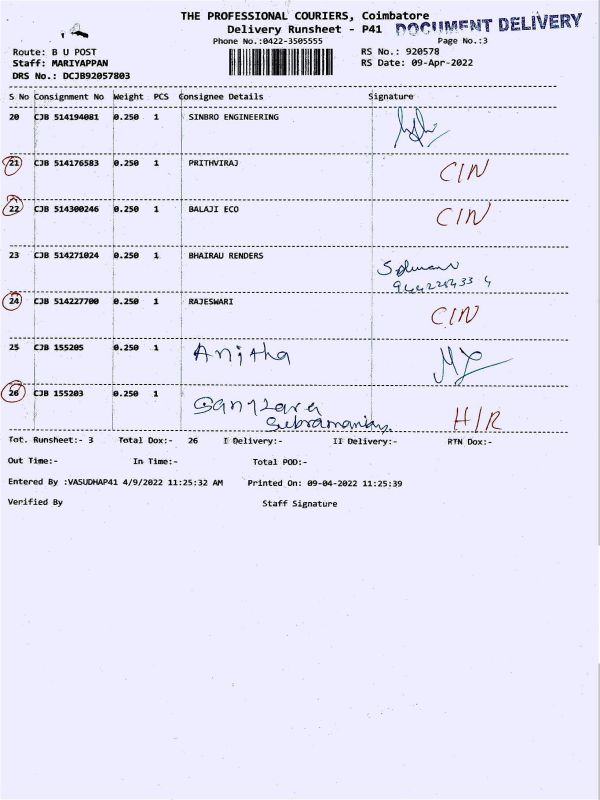 THE PROFESSIONAL COURIERS, Coimbatore
Delivery Runsheet - P41
DOCUMENT DELIVERY
Phone No.:0422-3505555
Page No.:3
Route: B U POST
RS No.: 920578
Staff: MARIYAPPAN
RS Date: 09-Apr-2022
DRS No.: DCJB92057803
S No Consignment No Weight PCS Consignee Details Signature
20 CJB 514194081 0.250 1 SINBRO ENGINEERING
21 CJB 514176583 0.250 1 PRITHVIRAJ CIN
22 CJB 514300246 0.250 1 BALAJI ECO CIN
23 CJB 514271024 0.250 1 BHAIRAU RENDERS
24 CJB 514227700 0.250 1 RAJESWARI CIN
25 CJB 155205 0.250 1 Anitha
26 CJB 155203 0.250 1 Subramanian H/R
Tot. Runsheet:- 3 Total Dox:- 26 I Delivery:- II Delivery:- RTN Dox:-
Out Time:- In Time:- Total POD:-
Entered By :VASUDHAP41 4/9/2022 11:25:32 AM Printed On: 09-04-2022 11:25:39
Verified By Staff Signature